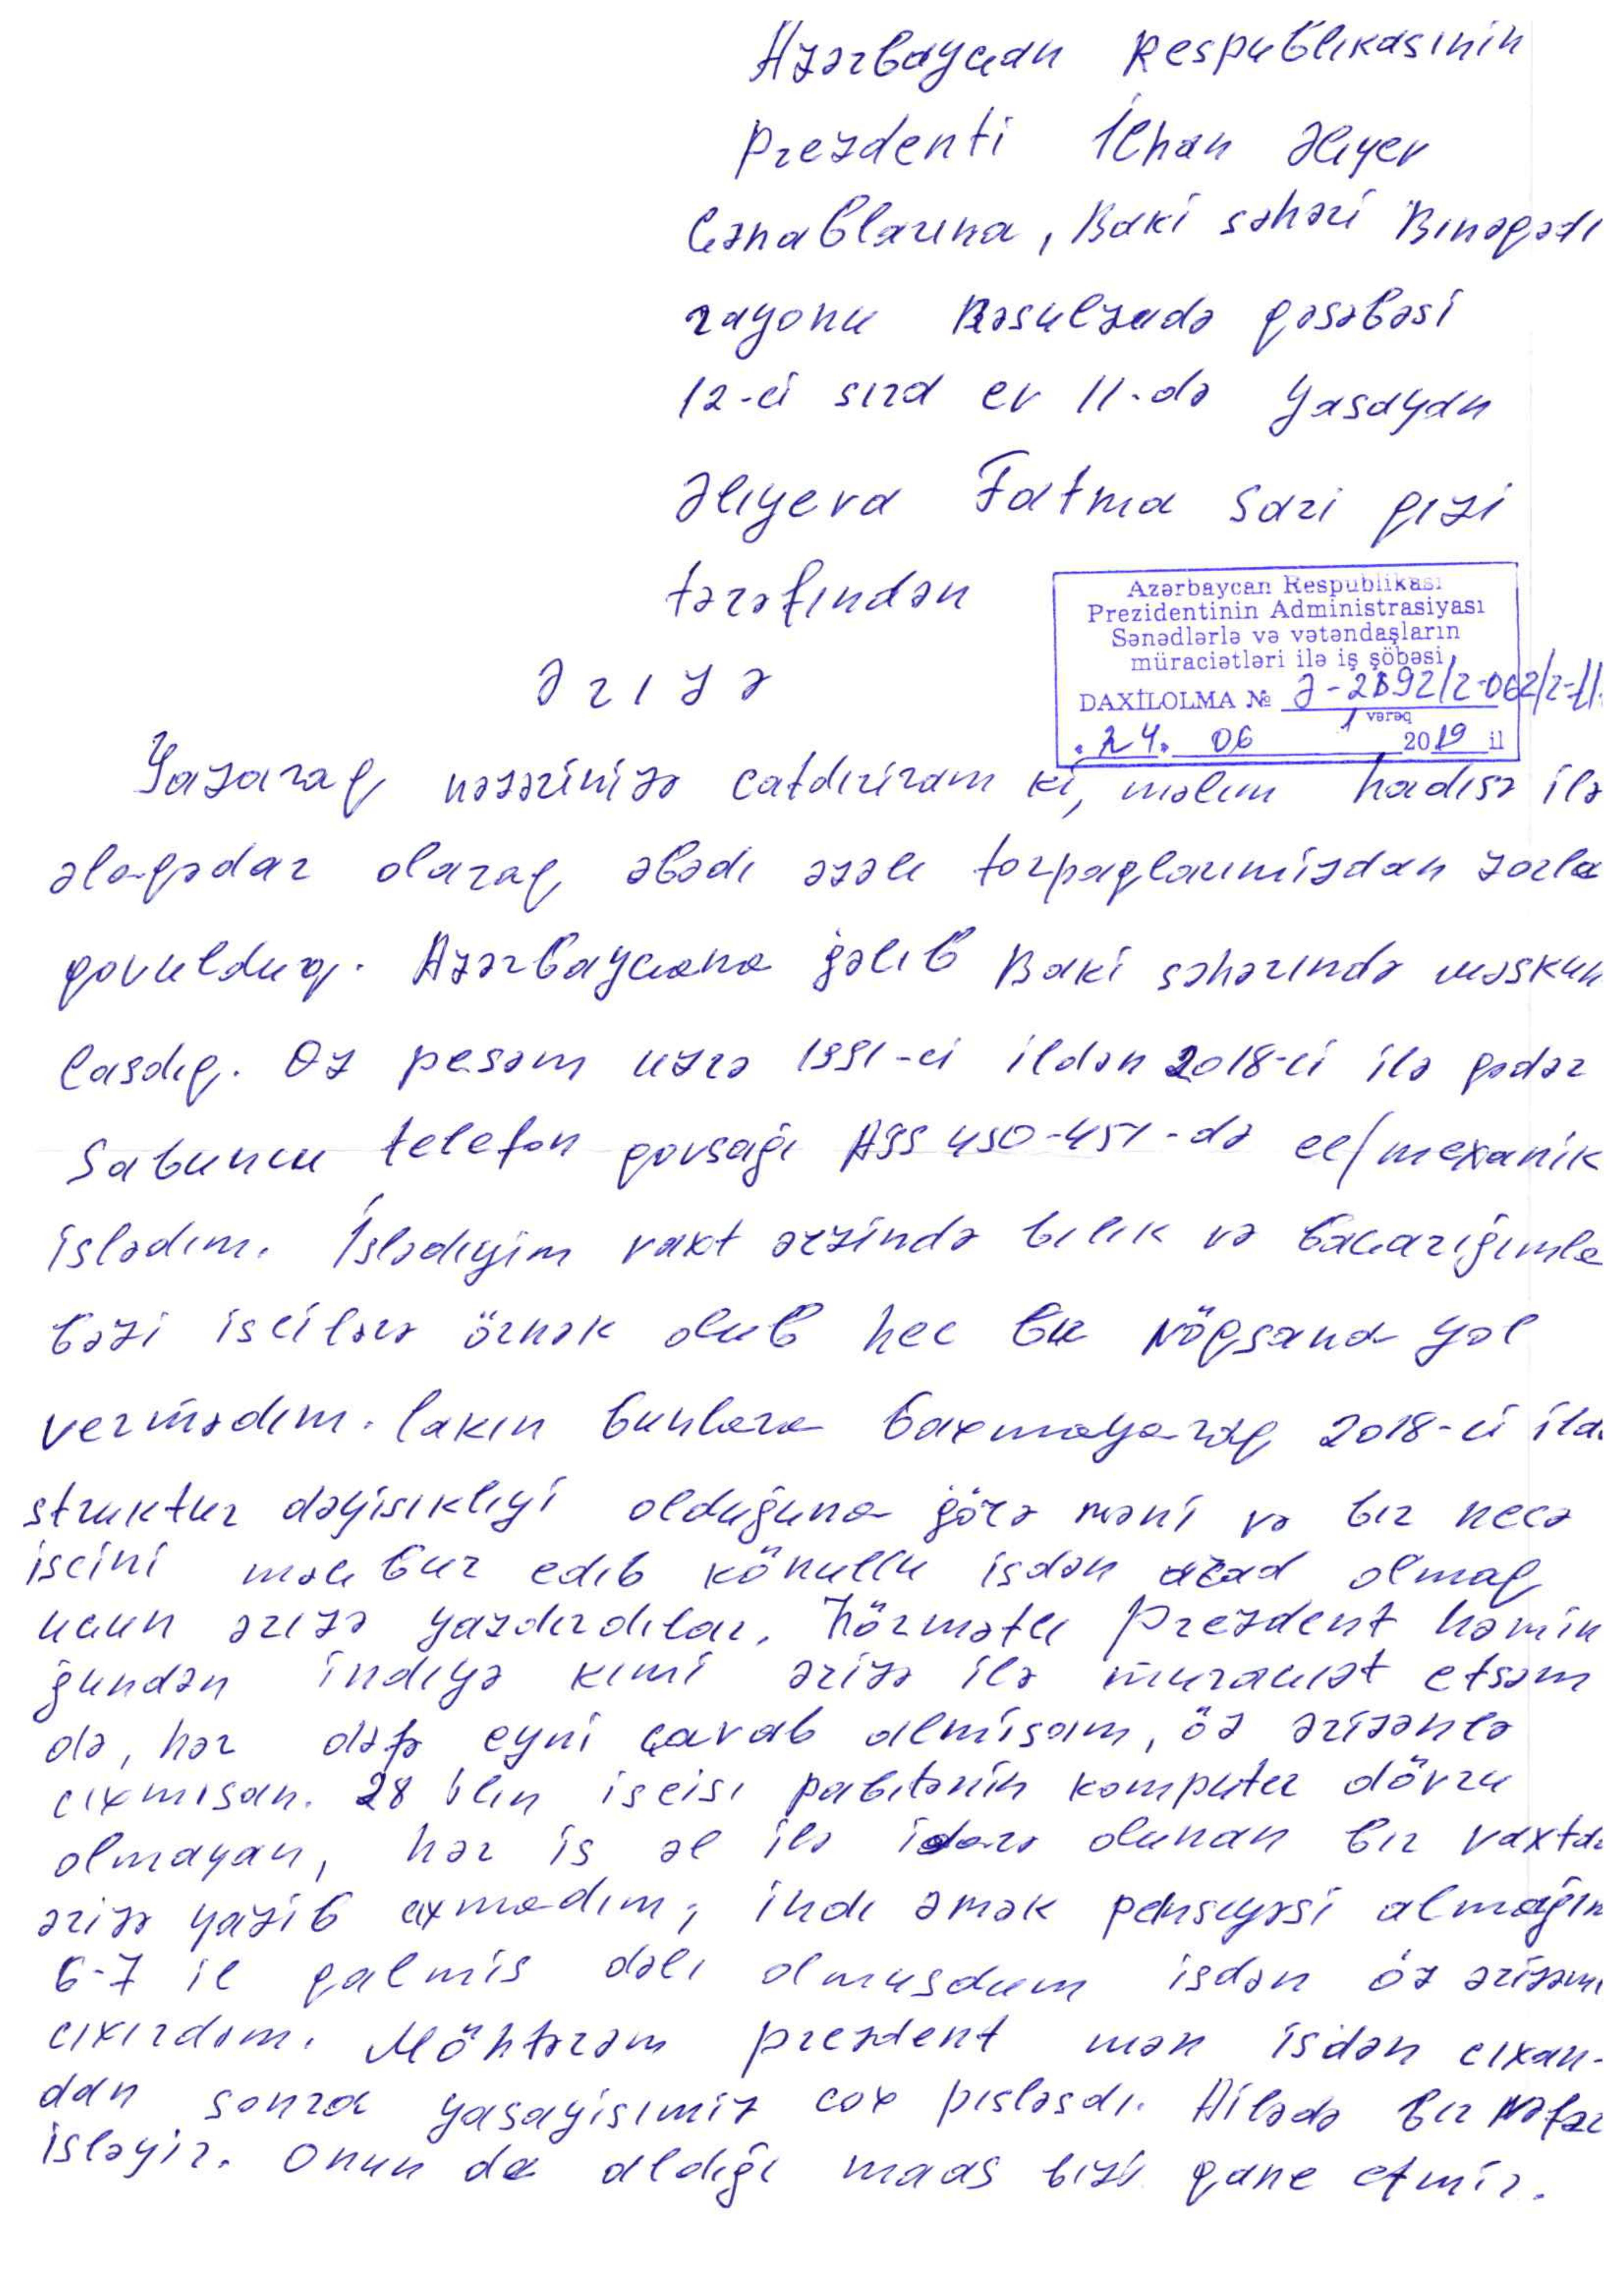 Azərbaycan Respublikasinin
Prezdenti İlham Əlıyev
Cənablarına, Baki səhəri Bınəqədı
rayonu Rəsulzadə qəsəbəsi
12-ci sıra ev 11-də Yasayan
Əlıyeva Fatma Sari qızi
tərəfındən
Azərbaycan Respublikası
Prezidentinin Administrasiyası
Sənədlərlə və vətəndaşların
müraciətləri ilə iş şöbəsi
DAXİLOLMA № Ə-2892/2-062/2-1/
1 vərəq
24. 06 2019 il
Ərızə
Yazaraq nəzərinizə catdıriram ki, məlum hadısə ilə
əlaqədar olaraq əbədı əzəlı torpaqlarımizdan zorla
qovulduq. Azərbaycana gəlıb Baki səhərındə məskun
lasdıq. Oz pesəm uzrə 1991-ci ildən 2018-ci ilə qədər
Sabuncu telefon qovsağı ASS 450-451-də el/mexanik
islədım. İslədıyim vaxt ərzində bılık və bacarığımla
bəzi iscilərə örnək olub hec bir nöqsana yol
vermədım. lakın bunlara baxmayaraq 2018-ci ildə
struktur dəyisıklıyi olduğuna görə məni və bır necə
iscini məcbur edıb könullu isdən azad olmaq
ucun ərızə yazdırdılar. Hörmətlı Prezdent həmin
gundən indıyə kımi ərizə ilə muracıət etsəm
də, hər dəfə eyni cavab almisam, öz ərizənlə
cıxmısan. 28 ilin iscisı rabıtənin komputer dövru
olmayan, hər is əl ilə idarə olunan bır vaxtda
ərizə yazib cıxmadım, indı əmək pensıyəsi almağım
6-7 il qalmis dəlı olmusdum isdən öz ərizəm
cıxırdım. Möhtərəm prezdent mən isdən cıxan-
dan sonra yasayisımiz cox pısləsdı. Ailədə bır nəfər
isləyir. Onun da aldığı maas bızi qane etmir.